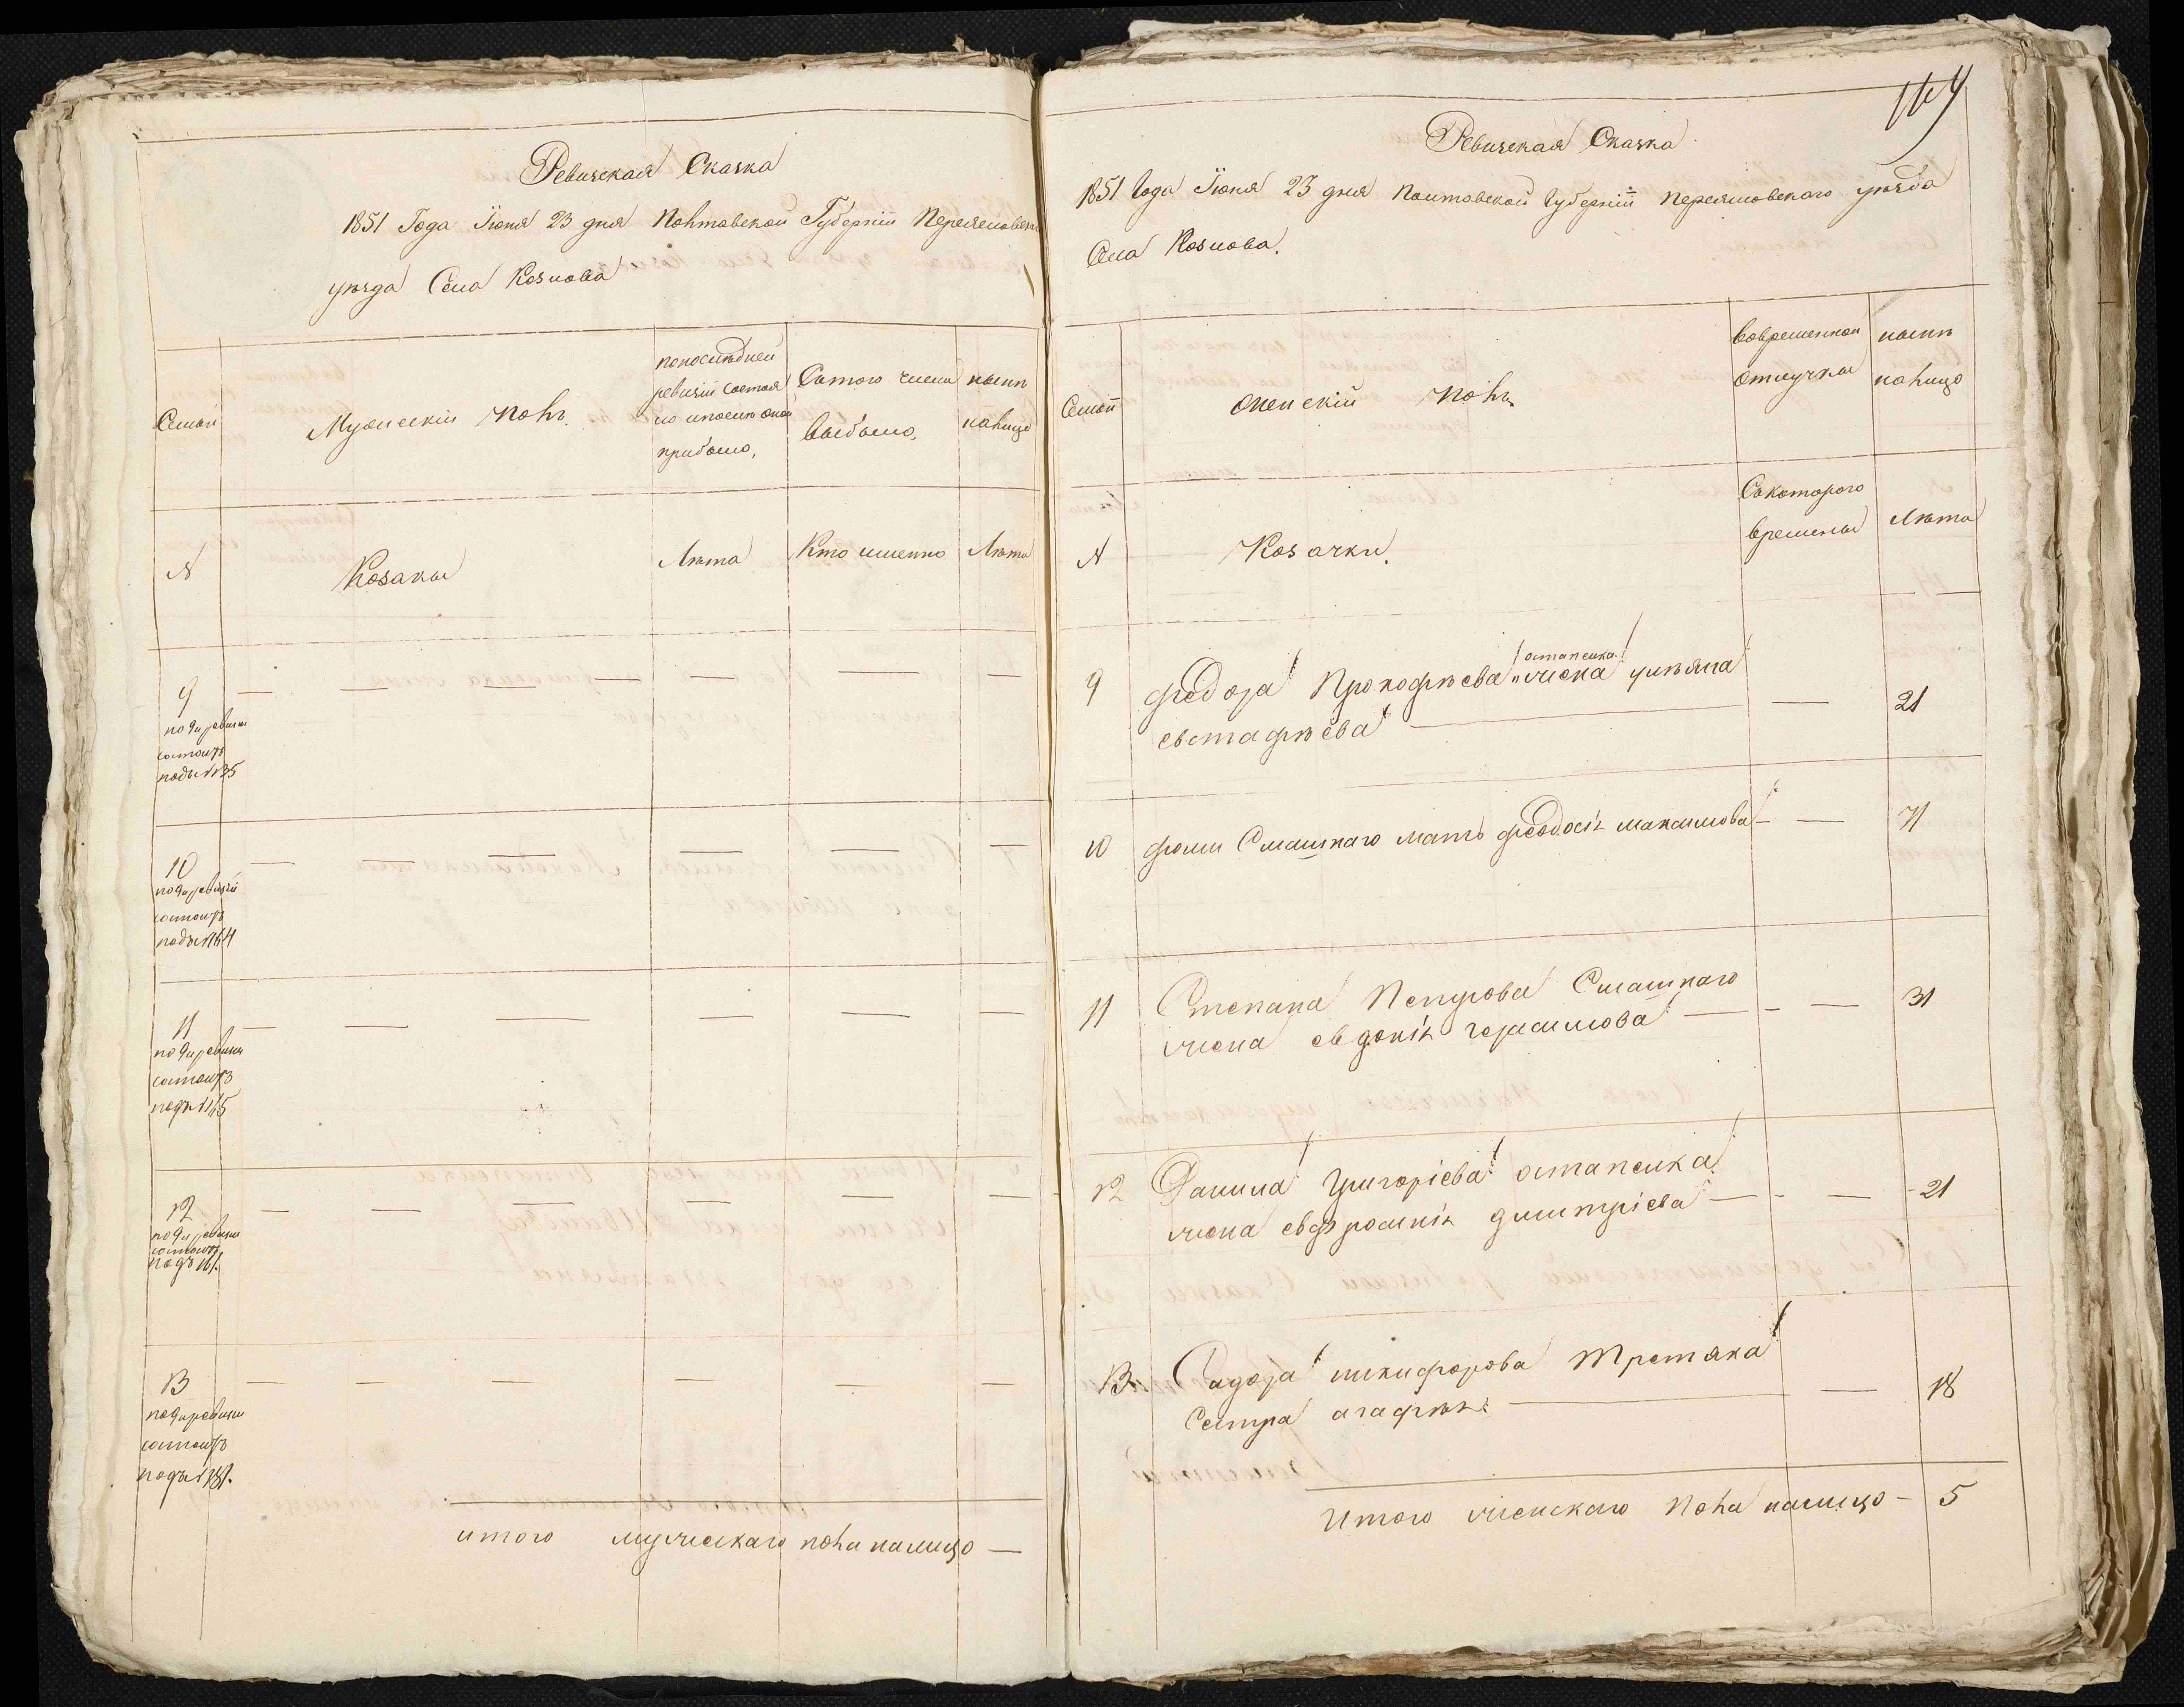 Ревизская Сказка
1851 Года Июня 23 дня Полтавской Губерніи Переясловскаго
уѣзда Села Козлова
Семьи
Мужескій полъ.
попоследней
ревизіи состоя
ло ипослѣ оной
прибыло,
Сътого числа
выбыло,
нынѣ
налицо
№
Козаки
Лѣта
Кто именно
Лѣта
9
по 9й ревизіи
состоитъ
подъ № 135
10
по 9й ревизіи
состоитъ
подъ № 164
11
по 9й ревизіи
состоитъ
подъ № 165
12
по 9й ревизіи
состоитъ
подъ 161.
13
по 9й ревизіи
состоитъ
подъ № 387.
итого мужескаго пола налицо —
Ревизская Сказка
1851 Года Июня 23 дня Полтовской Губерніи Переясловскаго уѣзда
Села Козлова.
Семьи
Женскій полъ.
Вовременной
отлучки
нынѣ
налицо
№
Козачки.
Съкоторого
времены
Лѣта
остапенка
9 федора Прокофьева жена ульяна
евстафѣева — 21
10 фомы Смашнаго мать феодосія максимова — 71
11 Степана Петрова Смашнаго
жена евдокія герасимова — 31
12 Данила Григоріева остапенка
жена евфросинія димитріева — 21
13 Сидора никифорова Третяка
Сестра агафія — 18
Итого женскаго пола налицо — 5